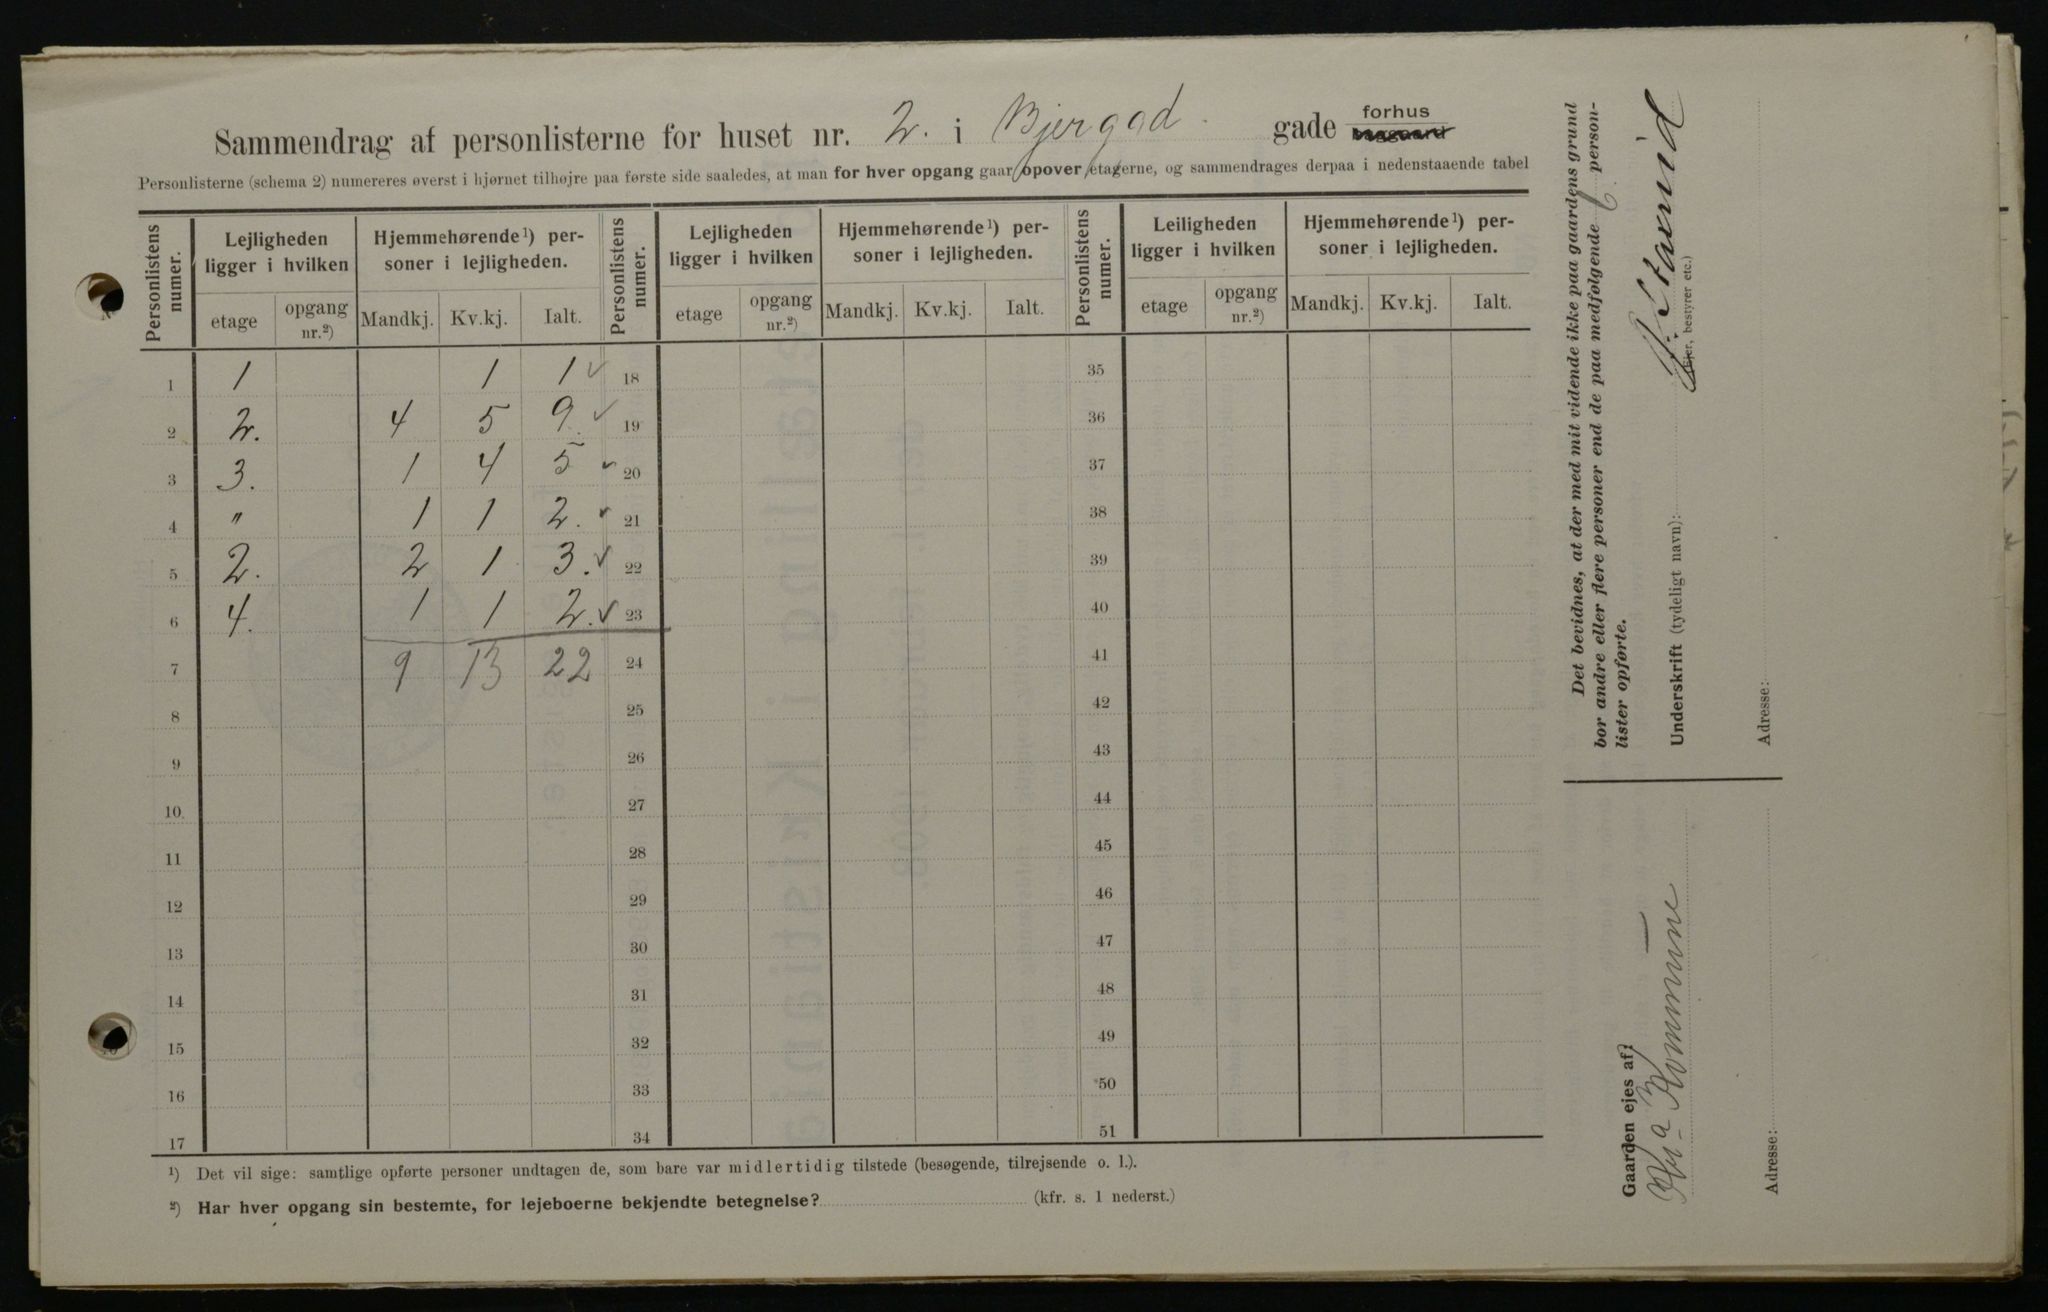 Sammendrag af personlisterne for huset nr. 2. i Bjergad gade forhus baggaard
Personlisterne (schema 2) numereres øverst i hjørnet tilhøjre paa første side saaledes, at man for hver opgang gaar opover etagerne, og sammendrages derpaa i nedenstaaende tabel
Personlistens numer. Lejligheden ligger i hvilken Hjemmehørende¹) personer i lejligheden. Personlistens numer. Lejligheden ligger i hvilken Hjemmehørende¹) personer i lejligheden. Personlistens numer. Leiligheden ligger i hvilken Hjemmehørende¹) personer i lejligheden.
etage opgang nr.²) Mandkj. Kv.kj. Ialt. etage opgang nr.²) Mandkj. Kv.kj. Ialt. etage opgang nr.²) Mandkj. Kv.kj. Ialt.
1 1 1 1 ✓ 18 35
2 2. 4 5 9 ✓ 19 36
3 3. 1 4 5 ✓ 20 37
4 " 1 1 2. ✓ 21 38
5 2. 2 1 3. ✓ 22 39
6 4. 1 1 2. ✓ 23 40
7 9 13 22 24 41
8 25 42
9 26 43
10 27 44
11 28 45
12 29 46
13 30 47
14 31 48
15 32 49
16 33 50
17 34 51
¹) Det vil sige: samtlige opførte personer undtagen de, som bare var midlertidig tilstede (besøgende, tilrejsende o. l.).
²) Har hver opgang sin bestemte, for lejeboerne bekjendte betegnelse? (kfr. s. 1 nederst.)
Det bevidnes, at der med mit vidende ikke paa gaardens grund
bor andre eller flere personer end de paa medfølgende 6 person-
lister opførte.
Underskrift (tydeligt navn):
(Ejer, bestyrer etc.)
Adresse:
Gaarden ejes af:
Kr.a Kommune
Adresse: